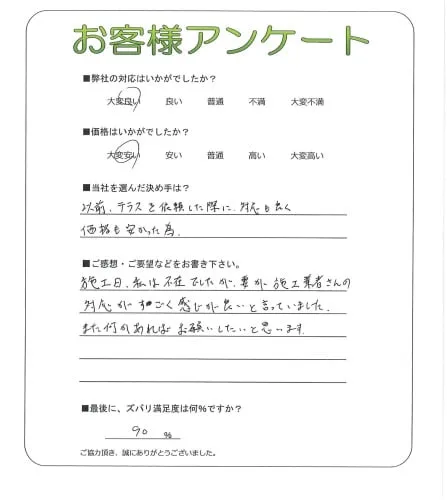 お客様アンケート
■弊社の対応はいかがでしたか？
大変良い 良い 普通 不満 大変不満
■価格はいかがでしたか？
大変安い 安い 普通 高い 大変高い
■当社を選んだ決め手は？
以前、テラスを依頼した際に、対応も良く
価格も安かった為、
■ご感想・ご要望などをお書き下さい。
施工日、私は不在でしたが、妻が施工業者さんの
対応がすごく感じが良いと言っていました。
また何かあればお願いしたいと思います。
■最後に、ズバリ満足度は何％ですか？
90 %
ご協力頂き、誠にありがとうございました。